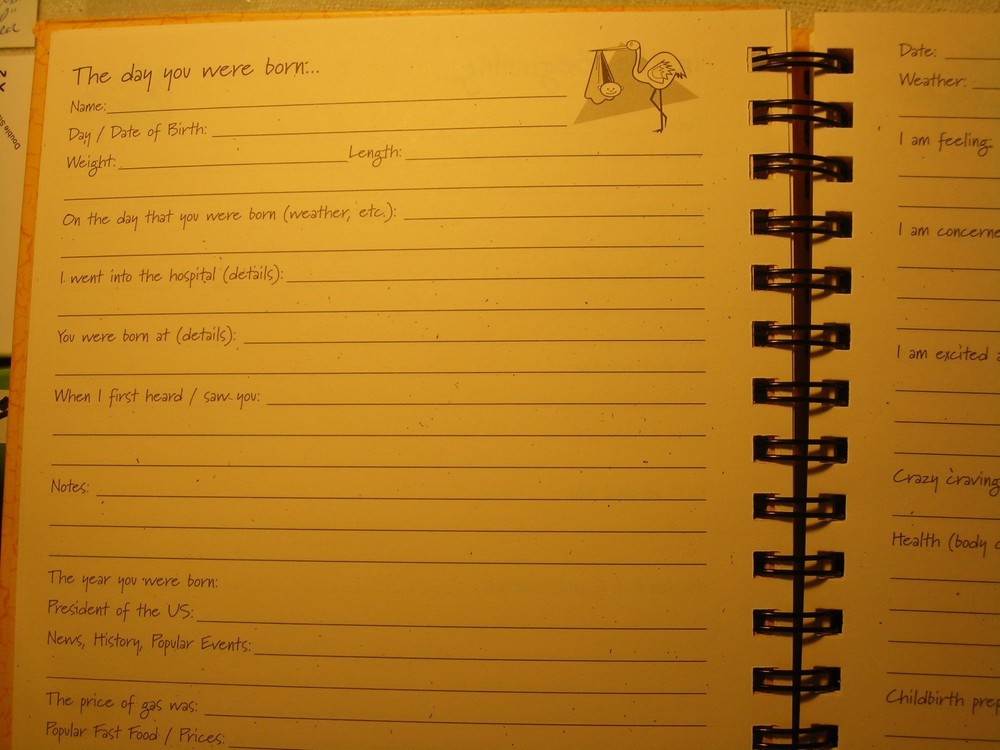 The day you were born:..
Name:
Day / Date of Birth:
Weight: Length:
On the day that you were born (weather, etc.):
I went into the hospital (details):
You were born at (details):
When I first heard / saw you:
Notes:
The year you were born:
President of the US:
News, History, Popular Events:
The price of gas was:
Popular Fast Food / Prices:
Date:
Weather:
I am feeling
I am concerne
I am excited a
Crazy craving
Health (body c
Childbirth prep
Double Si